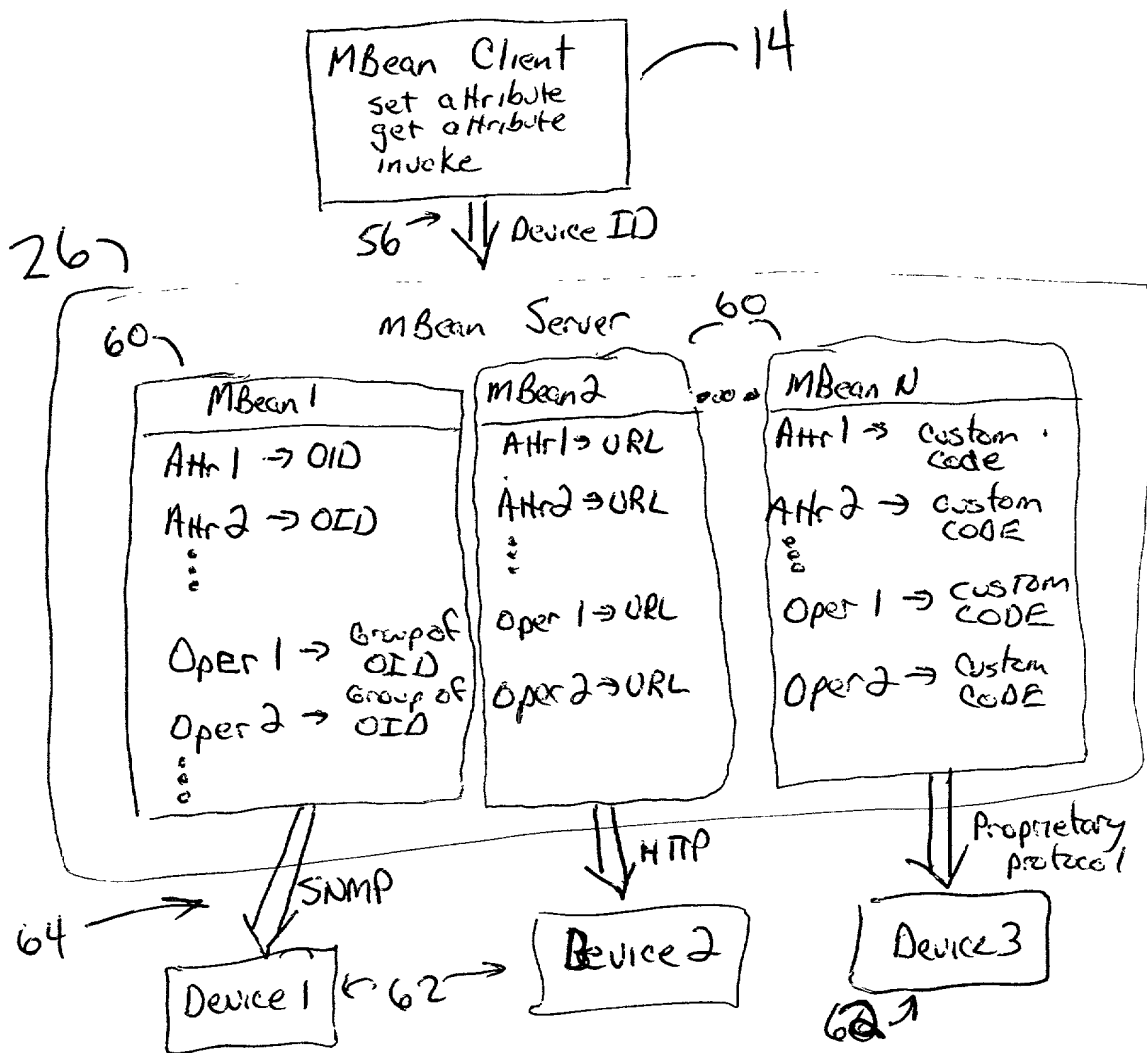 MBean Client
set attribute
get attribute
invoke
14
56
Device ID
26
mBean Server
60
60
MBean 1
Attr 1 → OID
Attr 2 → OID
Oper 1 → Group of
OID
Oper 2 → Group of
OID
mBean 2
Attr 1 → URL
Attr 2 → URL
Oper 1 → URL
Oper 2 → URL
MBean N
Attr 1 → custom
code
Attr 2 → custom
CODE
Oper 1 → custom
CODE
Oper 2 → custom
CODE
SNMP
HTTP
Proprietary
protocol
64
Device 1
62
Device 2
Device 3
62